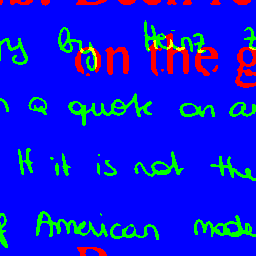 by Heinz
on the g
a quote on
If it is not the
American made